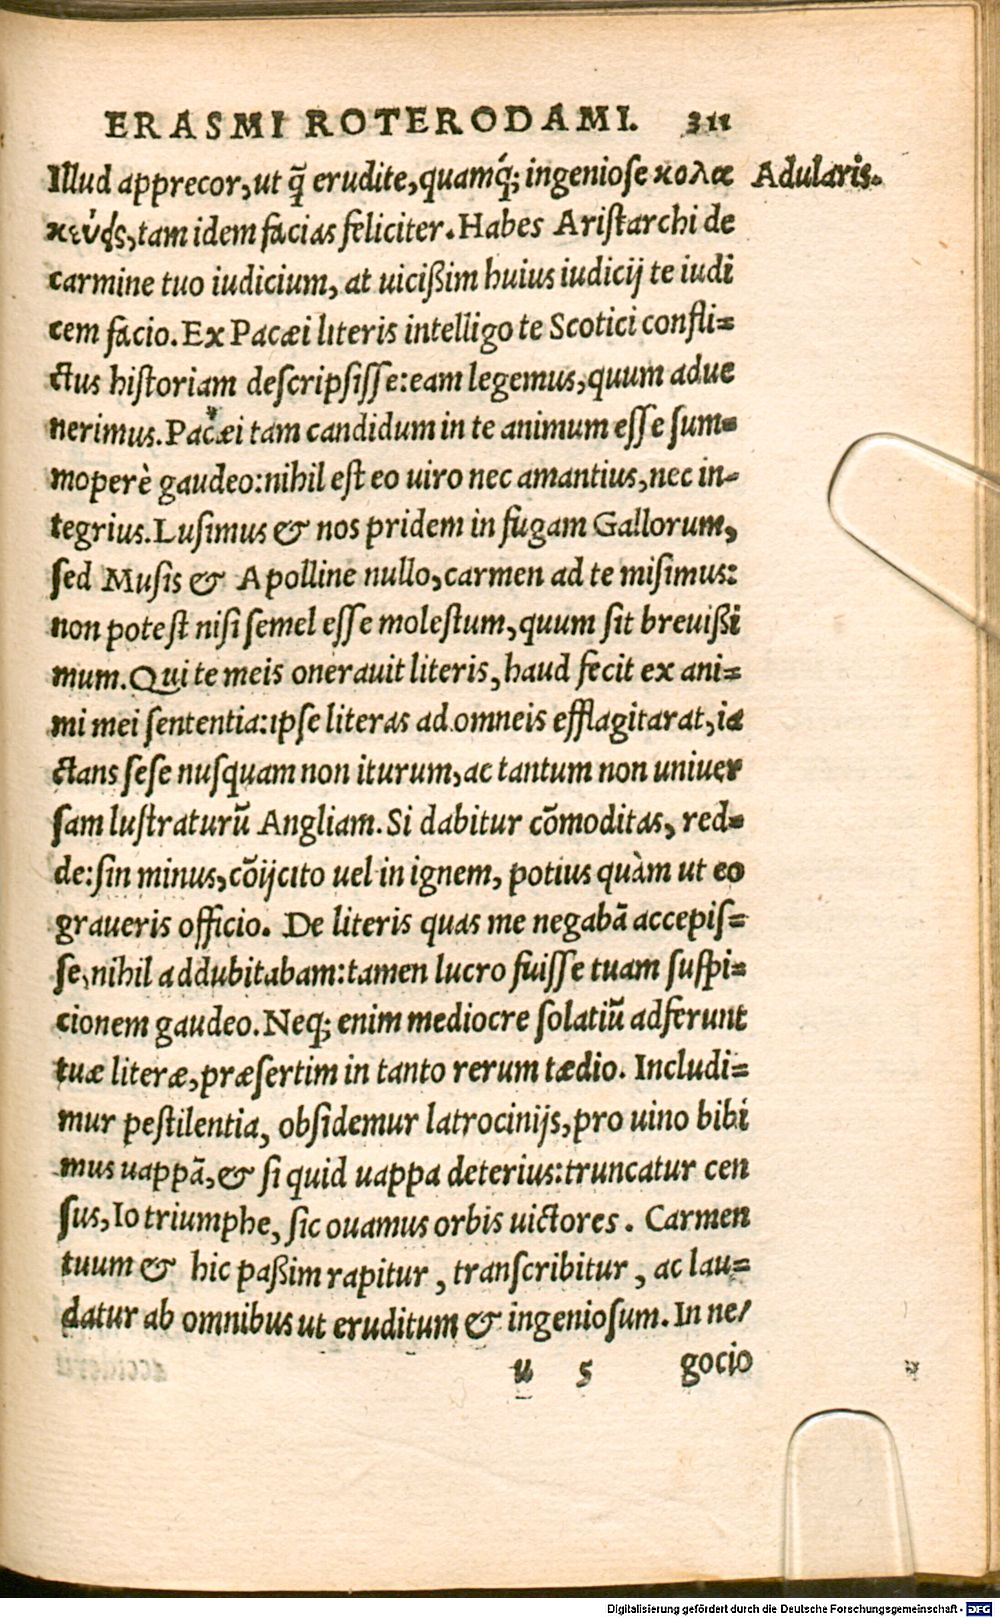 ERASMI ROTERODAMI. 311
Illud apprecor, ut q̃ erudite, quamq́; ingeniose κολα Adularis.
κεύεις, tam idem facias feliciter. Habes Aristarchi de
carmine tuo iudicium, at uicißim huius iudicij te iudi
cem facio. Ex Pacæi literis intelligo te Scotici confli=
ctus historiam descripsisse: eam legemus, quum adue
nerimus. Pacæi tam candidum in te animum esse sum=
moperè gaudeo: nihil est eo uiro nec amantius, nec in-
tegrius. Lusimus & nos pridem in fugam Gallorum,
sed Musis & Apolline nullo, carmen ad te misimus:
non potest nisi semel esse molestum, quum sit breuißi
mum. Qui te meis onerauit literis, haud fecit ex ani=
mi mei sententia: ipse literas ad omneis efflagitarat, ia
ctans sese nusquam non iturum, ac tantum non uniuer
sam lustraturũ Angliam. Si dabitur cõmoditas, red=
de: sin minus, cõijcito uel in ignem, potius quàm ut eo
graueris officio. De literis quas me negabã accepis=
se, nihil addubitabam: tamen lucro fuisse tuam suspi=
cionem gaudeo. Neq; enim mediocre solatiũ adferunt
tuæ literæ, præsertim in tanto rerum tædio. Includi=
mur pestilentia, obsidemur latrocinijs, pro uino bibi
mus uappã, & si quid uappa deterius: truncatur cen
sus, Io triumphe, sic ouamus orbis uictores. Carmen
tuum & hic paßim rapitur, transcribitur, ac lau=
datur ab omnibus ut eruditum & ingeniosum. In ne/
u 5 gocio
Digitalisierung gefördert durch die Deutsche Forschungsgemeinschaft - DFG